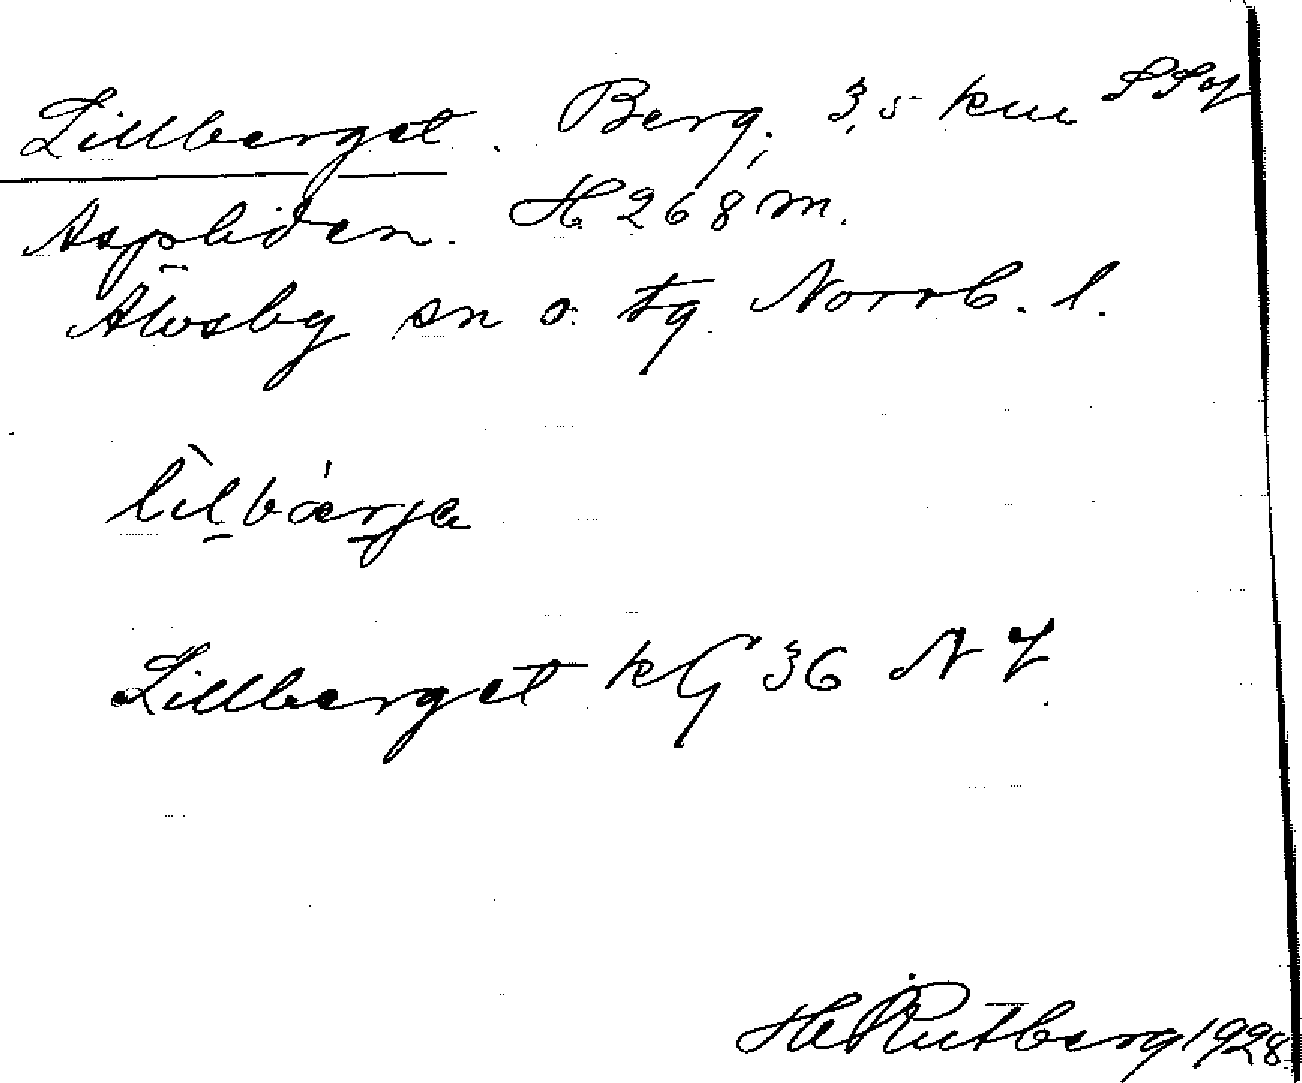 Lillberget. Berg, 3,5 km SSO
Aspliden. H 268 m.
Älvsby sn o. tg. Norrb. l.
lìlbárja
Lillberget kG 36 NZ
H. Rutberg 1928